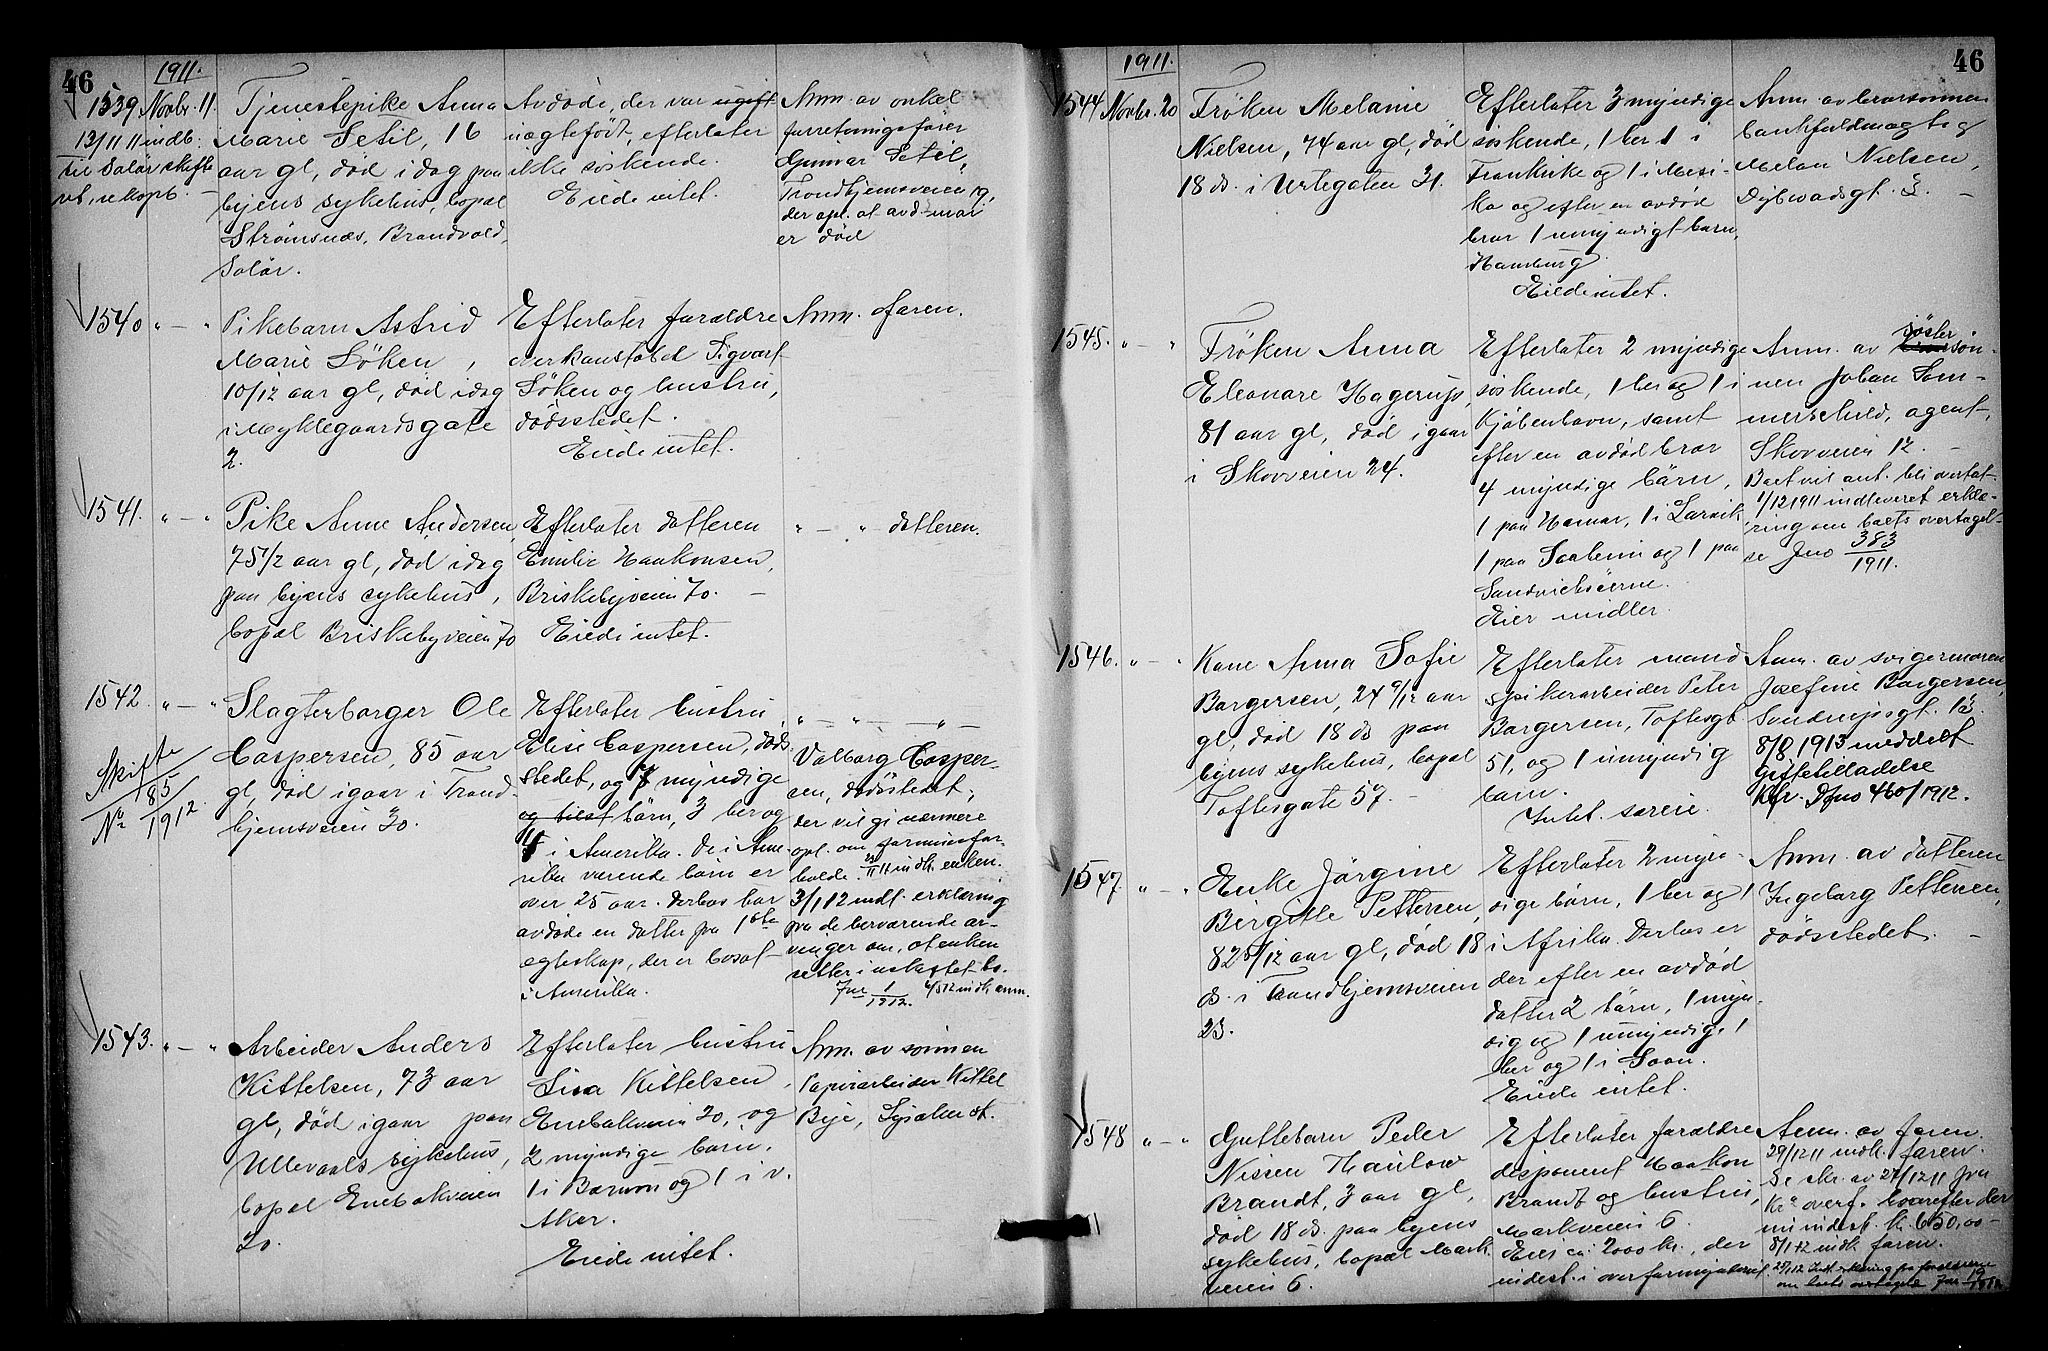 46
1911.
1539 Novbr. 11.
13/11 11 indb.
til Solør skifte
Tjenestepike Anna
Marie Setil, 16
aar gl, død i dag paa
byens sykehus, bopæl
Strømsnæs, Brandvold,
Solør.
Avdøde, der var ugift
uægtefødt, efterlater
ikke søskende.
Eiede intet.
Anm. av onkel
forretningsfører
Gunnar Setil,
Trondhjemsveien 19,
der opl. at avd. mor
er død
1540 " — "
Pikebarn Astrid
Marie Söken,
10/12 aar gl, død idag
i Myklegaardsgate
2.
Efterlater forældre
Sigvart
Söken og hustru,
dødsstedet.
Eiede intet.
Anm. faren.
1541. " — "
Pike Anne Andersen,
75 1/2 aar gl, død idag
paa byens sykehus,
bopæl Briskebyveien 70
Efterlater datteren
Emilie Haakonsen,
Briskebyveien 70. —
Eiede intet.
" — " datteren.
1542. " — "
Skifte
No 85/1912.
Slagterborger Ole
Caspersen, 85 aar
gl, død igaar i Trond-
hjemsveien 30.
Efterlater hustru
Elise Caspersen, døds-
stedet, og 7 myndige
børn, 3 her og
4 i Amerika. De i Ame-
rika værende børn er
over 25 aar. Derhos har
avdøde en datter fra 1ste
egteskap, der er bosat
i Amerika.
" — " — " —
Valborg Casper-
sen, dødsstedet,
der vil gi nærmere
opl. om formuesfor-
holde. 23/11 11 indk. enken.
3/1 12 indl. erklæring
fra de herværende ar-
vinger om, at enken
sitter i uskiftet bo.
Jno 1/1912. 4/5 12 indk. anm.
1543. " — "
Arbeider Anders
Kittelsen, 73 aar
gl, død igaar paa
Ullevaals sykehus,
bopæl Enebakveien
20.
Efterlater hustru
Lisa Kittelsen,
Enebakveien 20, og
2 myndige barn,
1 i Bærum og 1 i v.
Aker.
Eiede intet.
Anm. av sønnen
Papirarbeider Kittel
Bye, Lysaker st.
46
1911.
1544 Novbr. 20
Frøken Melanie
Nielsen, 74 aar gl, død
18 ds. i Urtegaten 31.
Efterlater 3 myndige
søskende, 1 her 1 i
Frankrike og 1 i Mexi-
ko og efter en avdød
bror 1 umyndigt barn,
Hamburg
Eiede intet.
Anm. av brorsønnen
bankfuldmægtig
Nielsen,
Dybwadsgt. 3. —
1545. " — "
Frøken Anna
Eleonore Hagerup,
81 aar gl, død igaar
i Skovveien 24.
Efterlater 2 myndige
søskende, 1 her og 1 i
Kjøbenhavn, samt
efter en avdød bror
4 myndige børn,
1 paa Hamar, 1 i Larvik,
1 paa og 1 paa
Sandvichsöerne.
Eier midler.
Anm. av søster
søn-
nen Johan Som-
merschild, agent,
Skovveien 12. —
Boet vil ant. bli overtat.
1/12 1911 indleveret erklæ-
ring om boets overtagel-
se Jno 383/1911.
1546. " — "
Kone Anna Sofie
Borgersen, 24 9/12 aar
gl, død 18 ds paa
byens sykehus, bopæl
Toftesgate 57. —
Efterlater mand
spikerarbeider Peter
Borgersen, Toftesgt
57, og 1 umyndig
barn.
Intet særeie.
Anm. av svigermoren
Josefine Borgersen,
Sondrupsgt. 13.
8/8 1913 meddelt
giftetilladelse
Kfr. Djno 460/1912.
1547. " — "
Enke Jörgine
Birgitte Pettersen,
82 5/12 aar gl, død 18
ds. i Trondhjemsveien
23.
Efterlater 2 myn-
dige børn, 1 her og 1
i Afrika. Derhos er
der efter en avdød
datter 2 børn, 1 myn-
dig og 1 umyndig, 1
her og 1 i Soon.
Eiede intet.
Anm. av datteren
Ingeborg Pettersen,
dødsstedet. —
1548 " — "
Guttebarn Peder
Nissen Thaulow
Brandt, 3 aar gl,
død 18 ds. paa byens
sykehus, bopæl Mark-
veien 6.
Efterlater forældre
disponent Haakon
Brandt og hustru,
Markveien 6.
Eier ca. 2000 kr., der
indest. i overformynderiet.
Anm. av faren.
29/12 11 indk. faren.
Se skr. av 27/12 11 fra
Kra overf. hvorefter der
indest. kr. 650,00 —
8/1 12 indk faren.
27/1 12 Indl. erklæring fra forældrene
om boets overtagelse Jno 19/1912